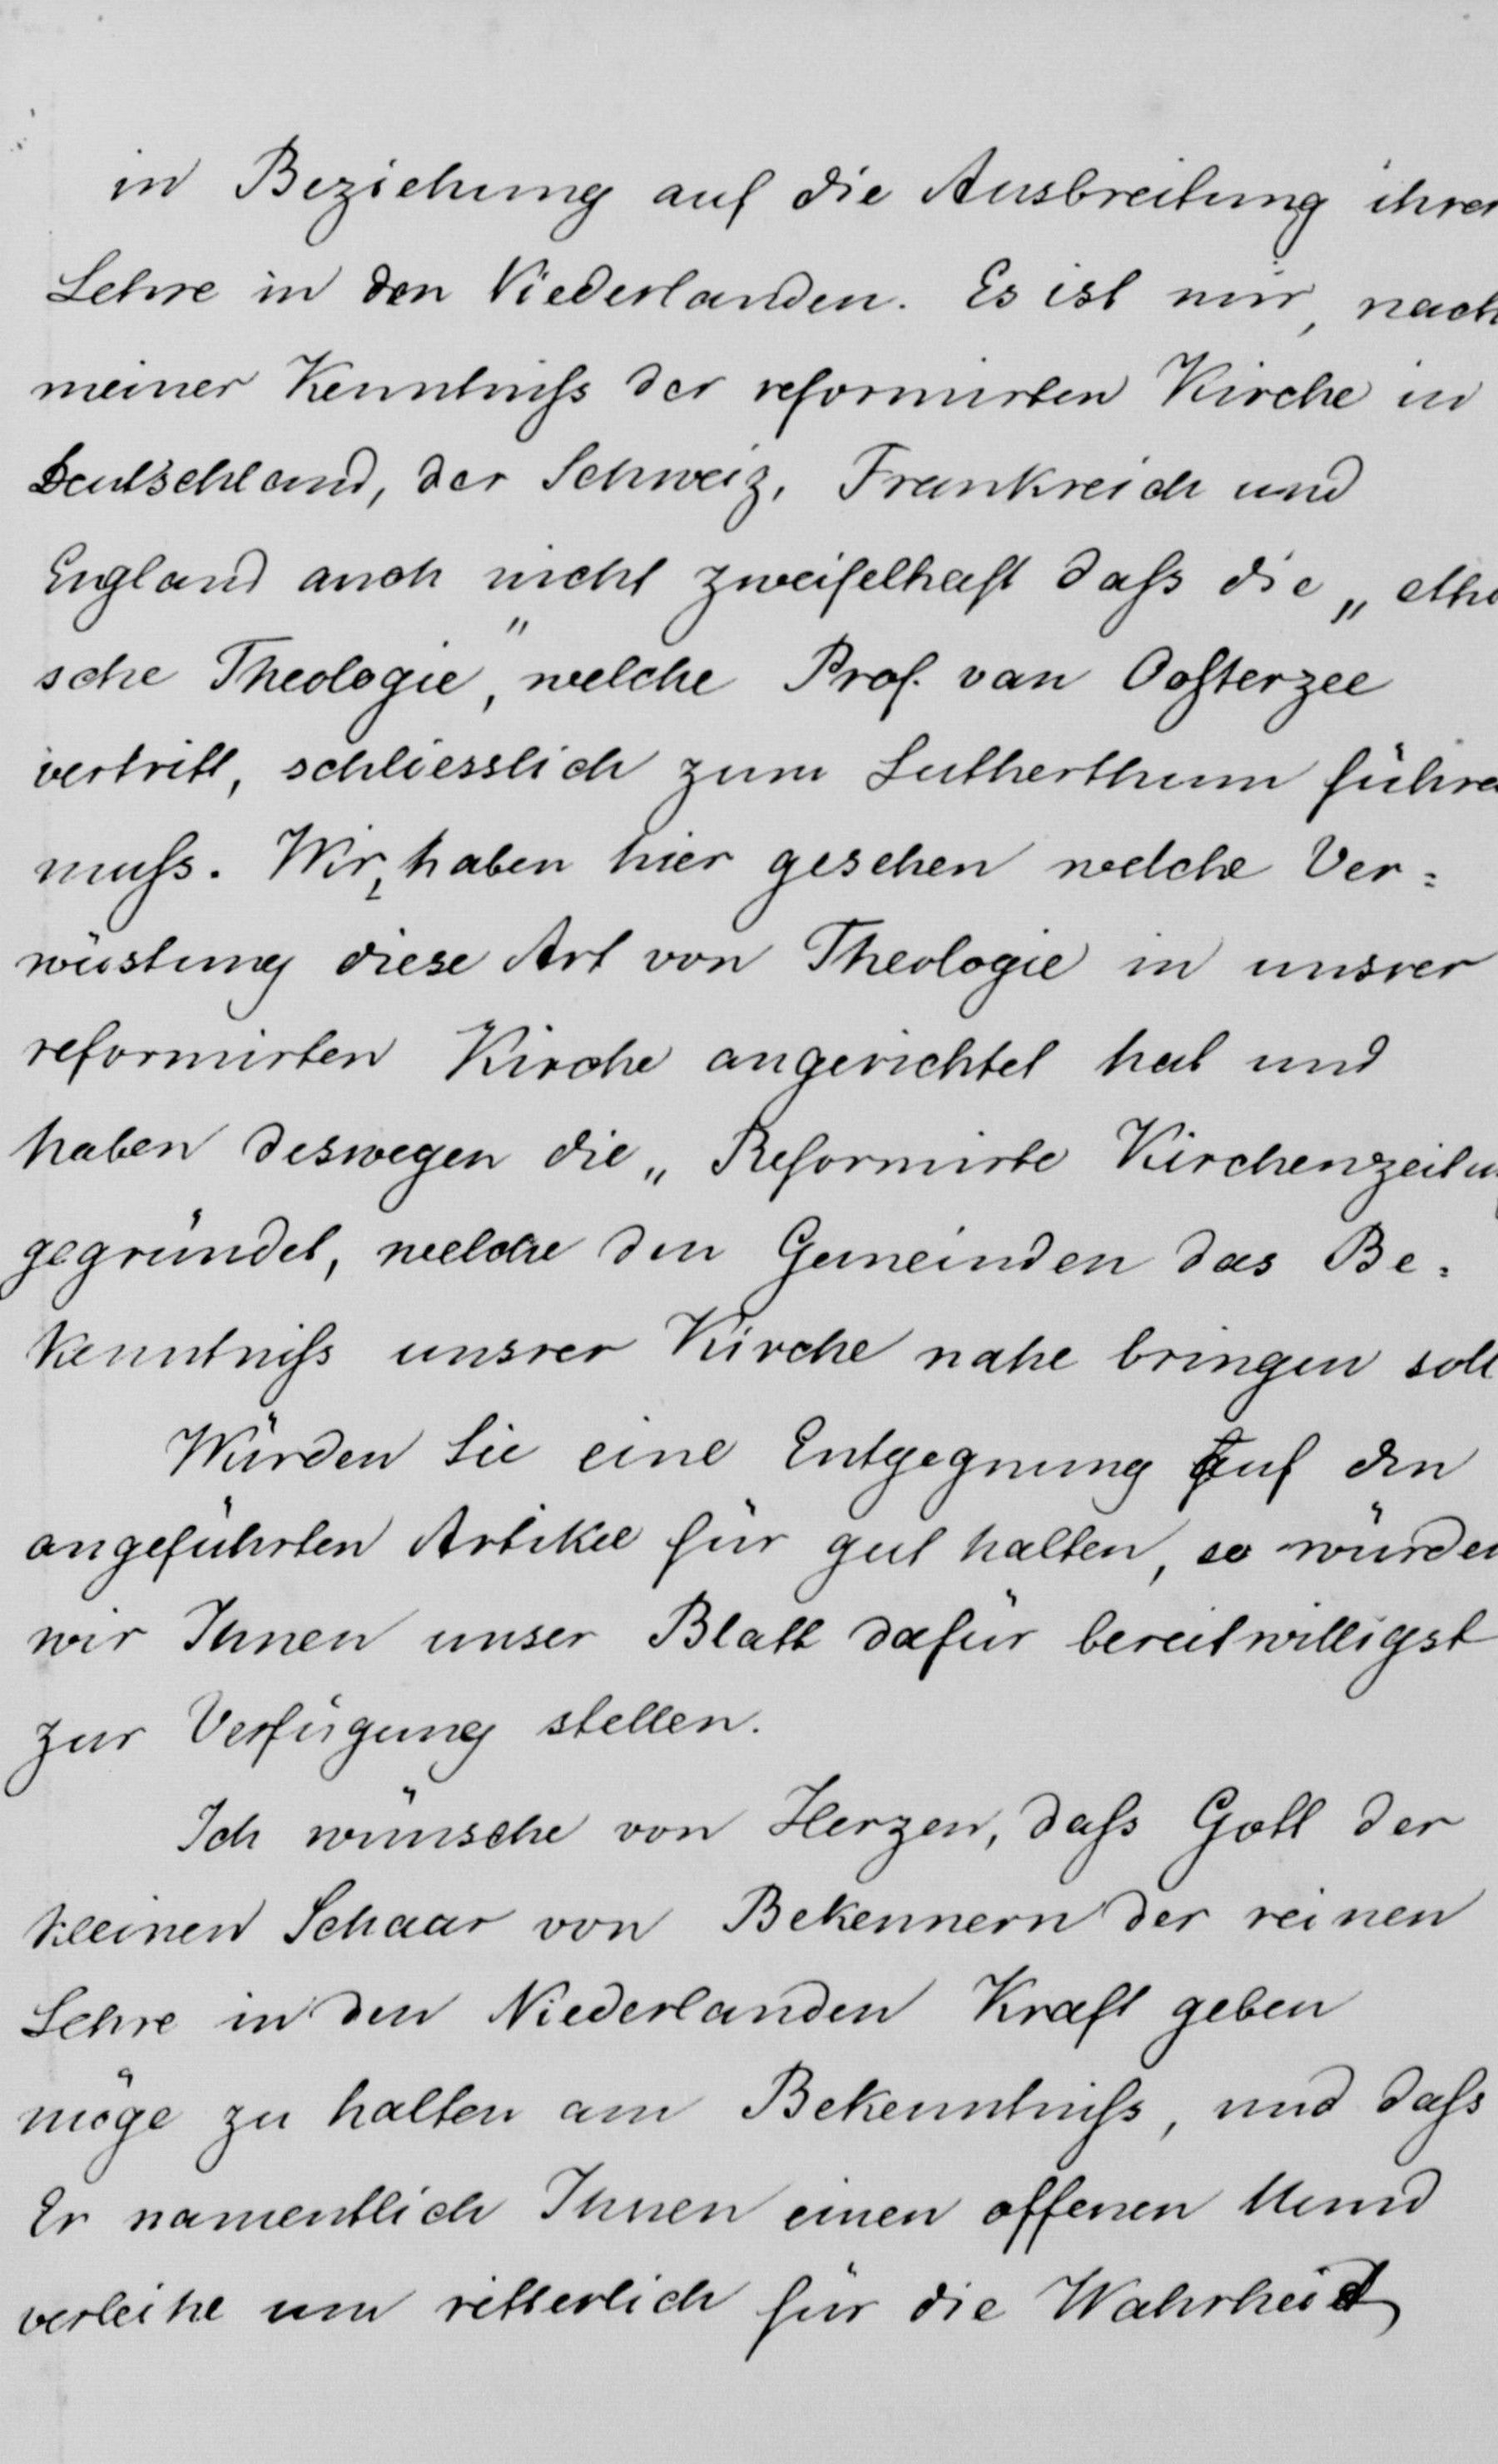 in Beziehung auf die Ausbreitung ihrer
Lehre in den Niederlanden. Es ist mir, nach
meiner Kenntniſs der reformirten Kirche in
Deutschland, der Schweiz, Frankreich und
England auch nicht zweifelhaft daſs die „ethi
sche Theologie," welche Prof. van Ooſterzee
vertritt, schliesslich zum Lutherthum führen
muſs. Wir, haben hier gesehen welche Ver=
wüstung diese Art von Theologie in unsrer
reformirten Kirche angerichtet hat und
haben deswegen die „Reformirte Kirchenzeitun
gegründet, welche den Gemeinden das Be=
kenntniſs unsrer Kirche nahe bringen soll
Würden Sie eine Entgegnung auf den
angeführten Artikel für gut halten, so würden
wir Ihnen unser Blatt dafür bereitwilligst
zur Verfügung stellen.
Ich wünsche von Herzen, daſs Gott der
kleinen Schaar von Bekennern der reinen
Lehre in den Niederlanden Kraft geben
möge zu halten am Bekenntniſs, und daſs
Er namentlich Ihnen einen offenen Mund
verleihe um ritterlich für die Wahrheit